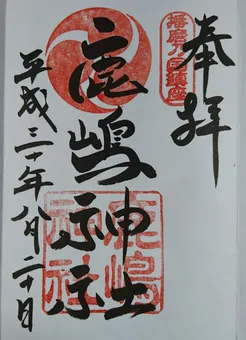 奉拝
播磨乃国鎮座
鹿嶋神社
鹿嶋神社
平成三十年八月二十日